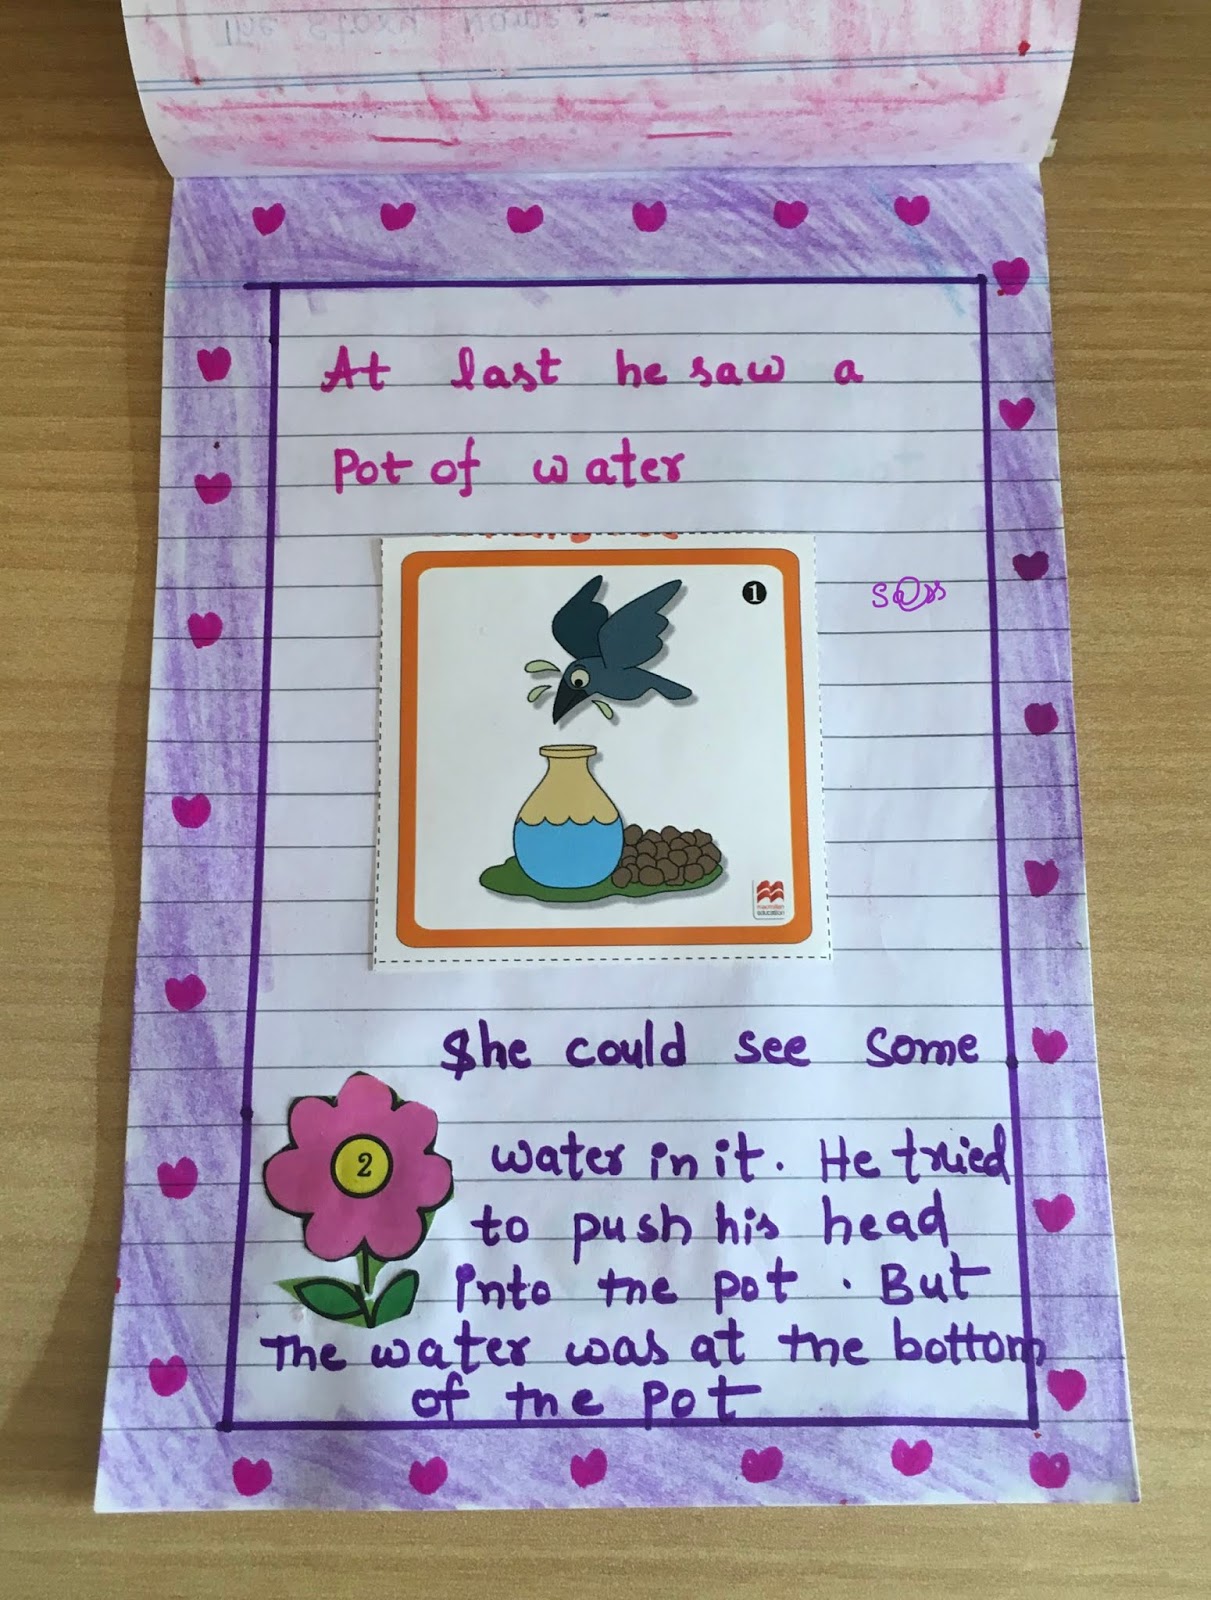 The Story Name:-
At last he saw a
Pot of water
1
macmillan
education
She could see some
water in it. He tried
to push his head
2
into the pot. But
The water was at the bottom
of the pot